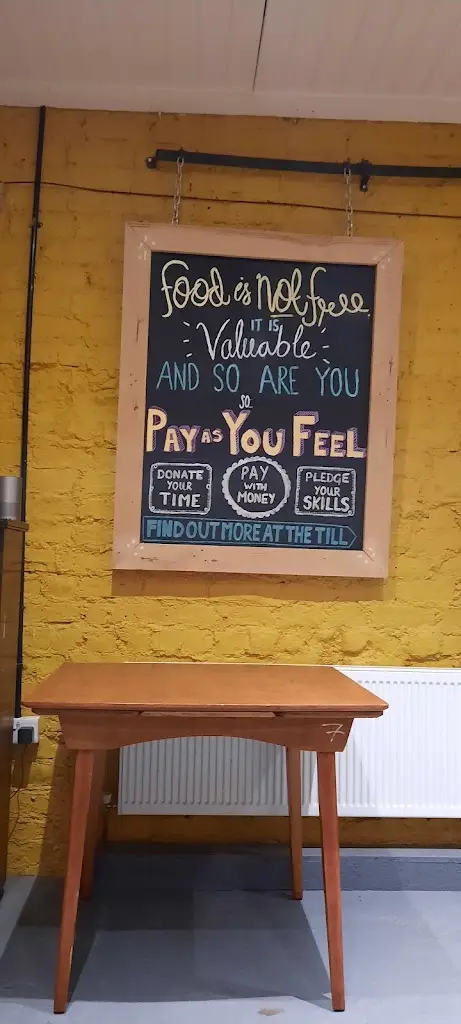 food is not free.
IT IS
Valuable
AND SO ARE YOU
SO
PAY AS YOU FEEL
DONATE YOUR TIME
PAY WITH MONEY
PLEDGE YOUR SKILLS
FIND OUT MORE AT THE TILL
7